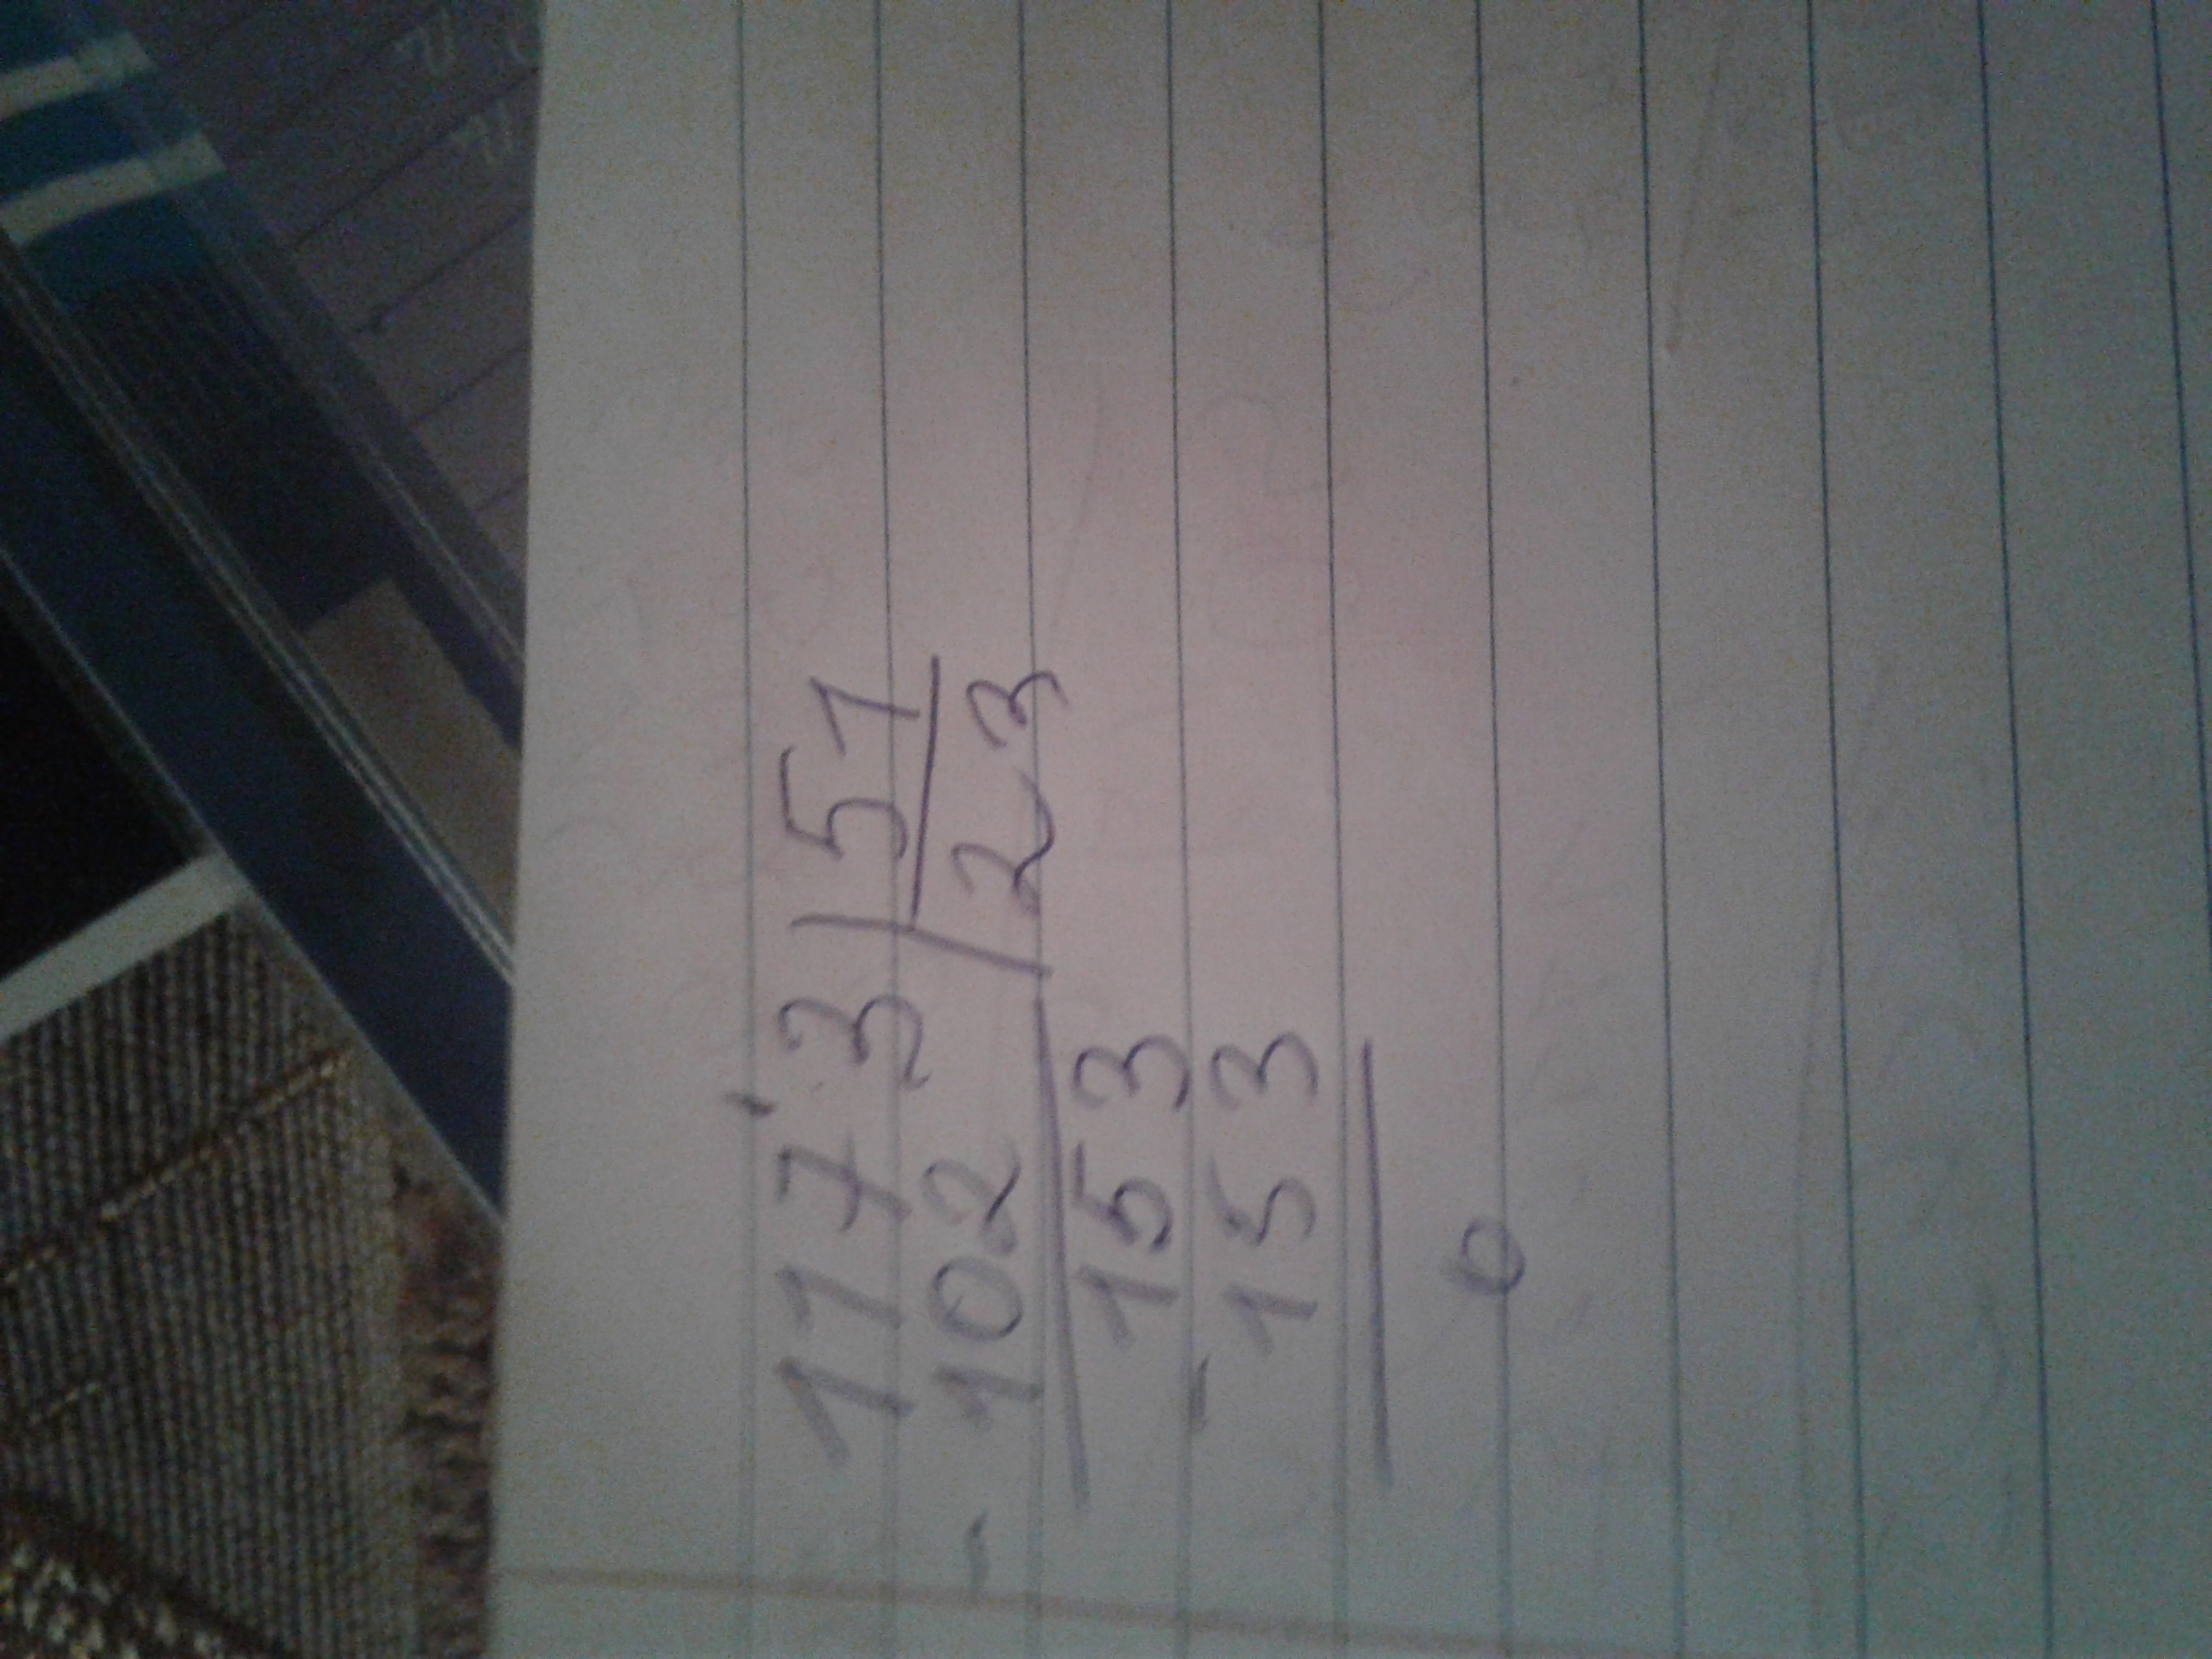 117'3 | 51
- 102 | 23
153
- 153
0